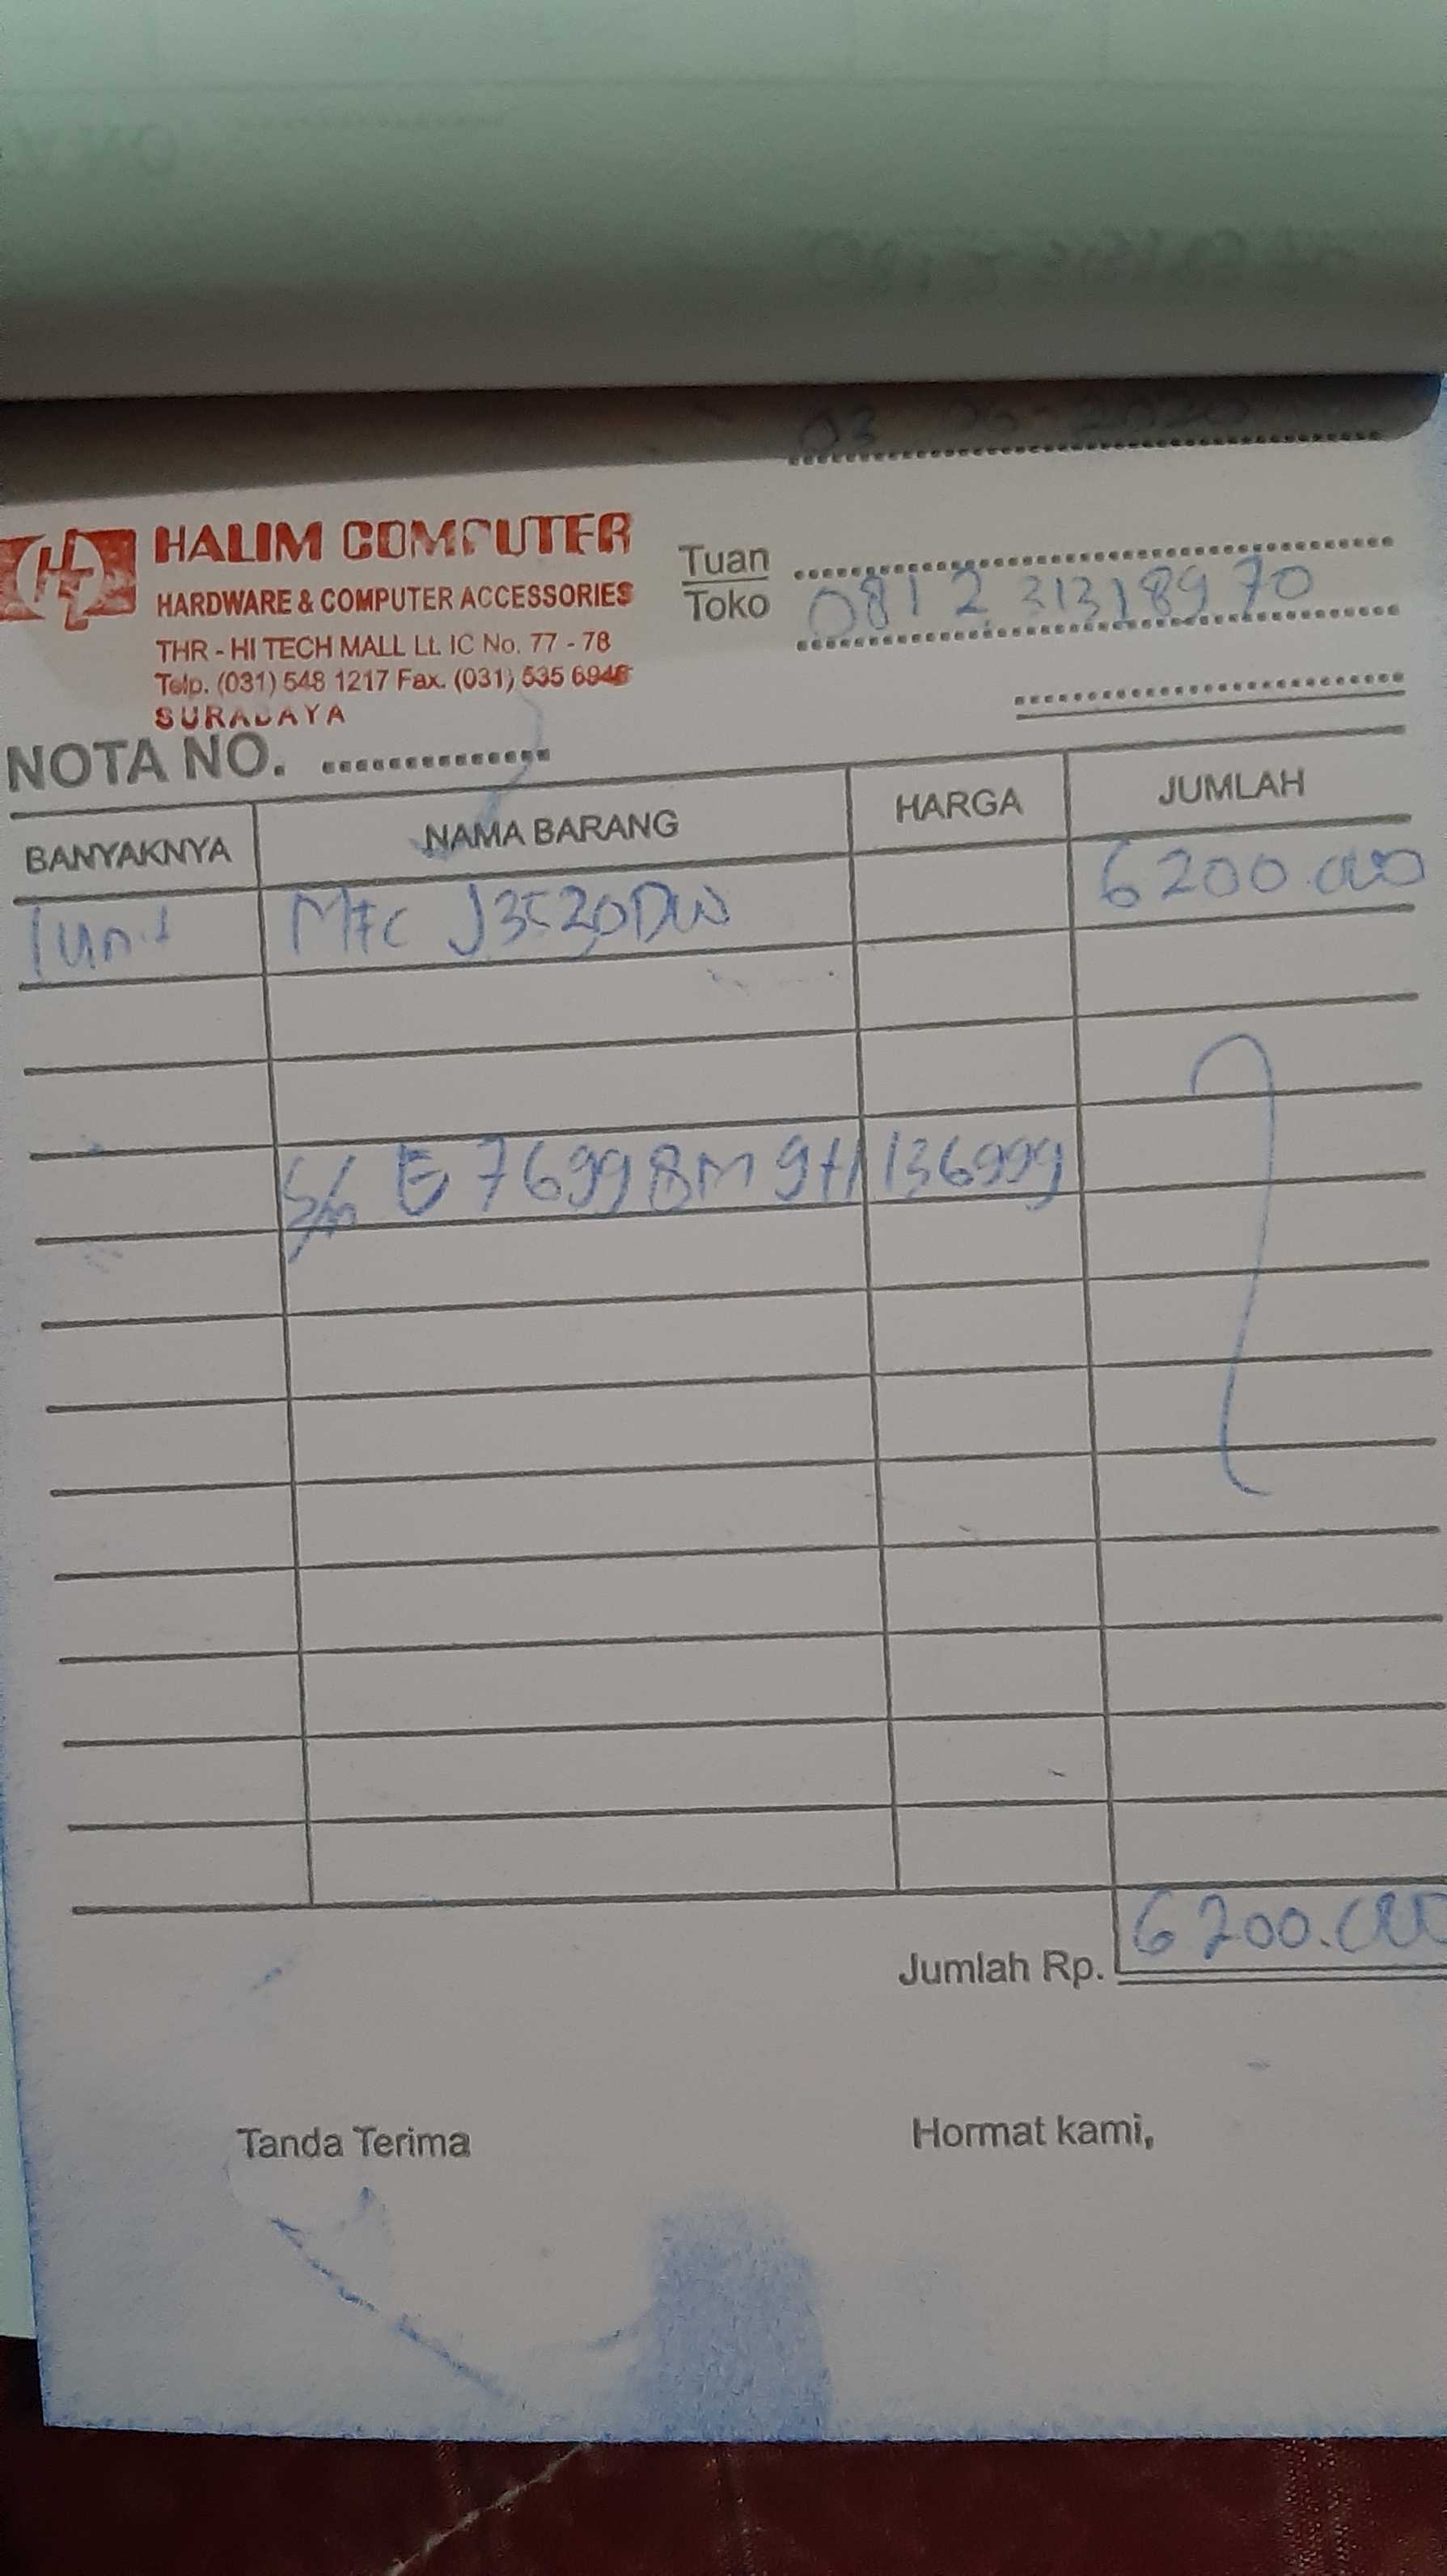 03 - 06 - 2020
HALIM COMPUTER
HARDWARE & COMPUTER ACCESSORIES
THR - HI TECH MALL Lt. IC No. 77 - 78
Telp. (031) 548 1217 Fax. (031) 535 6946
SURABAYA
Tuan
Toko
0812 31318970
NOTA NO.
BANYAKNYA NAMA BARANG HARGA JUMLAH
1 unit MFC J3520DW 6200.000
S/N E76998M9H136999
Jumlah Rp. 6200.000
Tanda Terima Hormat kami,